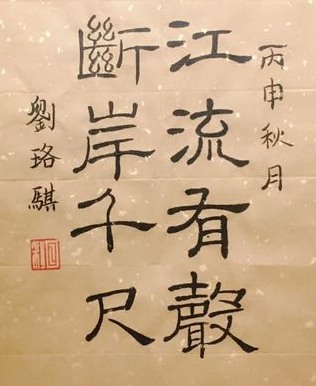 丙申秋月
江流有聲
斷岸千尺
劉珞騏